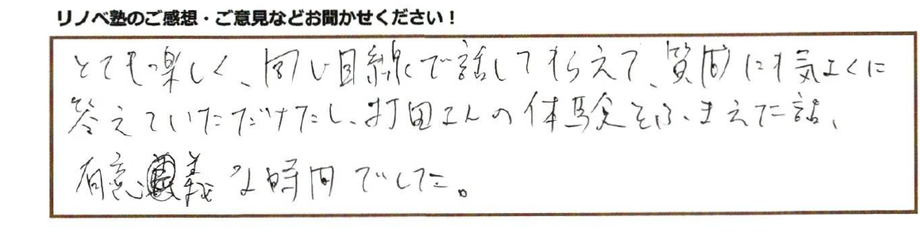 リノベ塾のご感想・ご意見などお聞かせください！
とても楽しく、同じ目線で話してもらえて、質問にも気よくに
答えていただけたし、打田さんの体験をふまえた話、
有意義な時間でした。